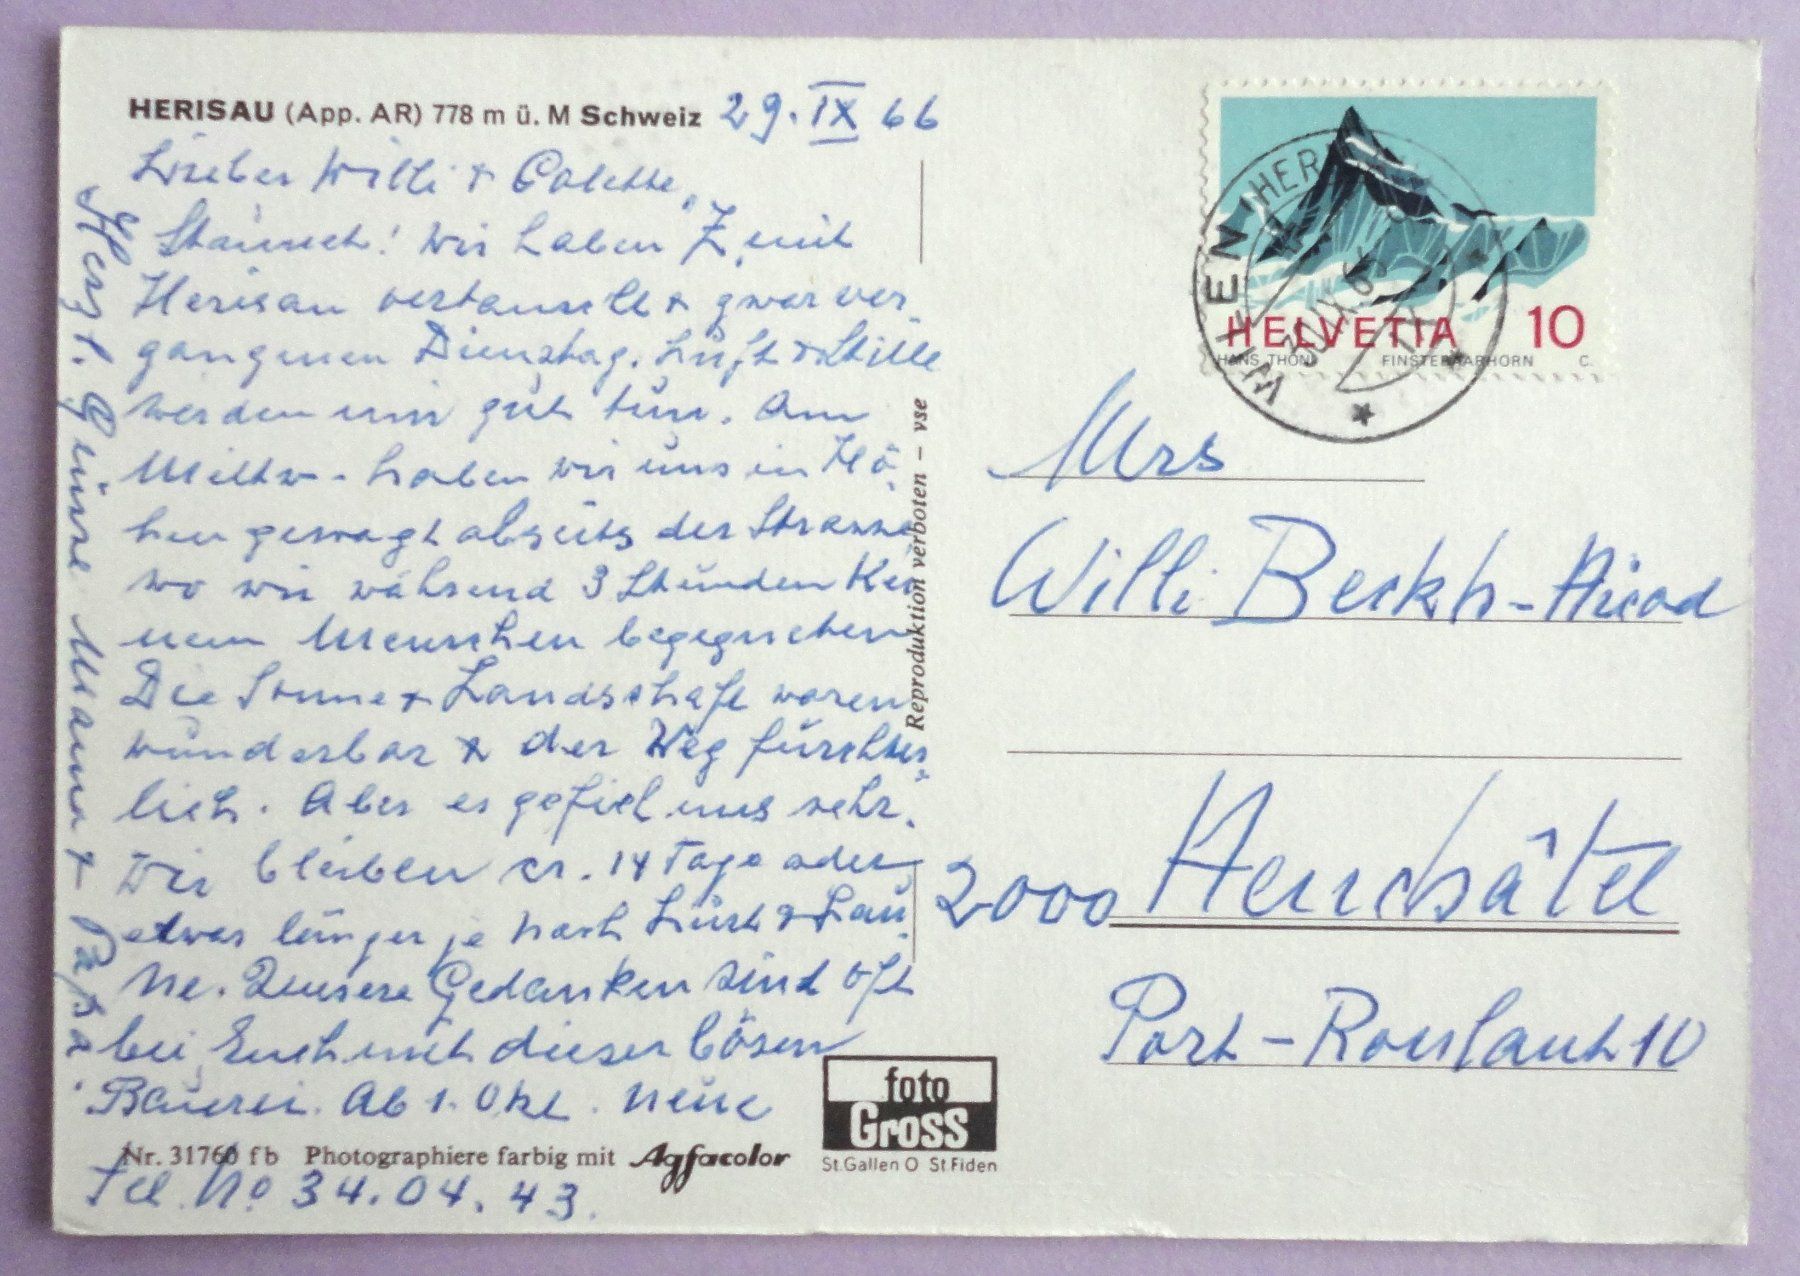 HERISAU (App. AR) 778 m ü. M Schweiz
29. IX 66
Lieber Willi + Colette,
Stäunet! Wir haben Z. mit
Herisau vertauscht + zwar ver-
gangenen Dienstag. Luft + Stille
werden uns gut tun. Am
Mittw. haben wir uns in Hö-
hen gewagt abseits der Strasse
wo wir während 3 Stunden kei
nem Menschen begegneten.
Die Sonne + Landschaft waren
wunderbar + der Weg fürchter-
lich. Aber es gefiel uns sehr.
Wir bleiben ca. 14 Tage oder
etwas länger je nach Lust + Lau-
ne. Unsere Gedanken sind oft
bei Euch mit dieser bösen
Bauerei. Ab 1. Okt. neue
Tel. No 34.04.43.
Herzl. Grüsse Mama + Papa.
Nr. 31760 fb Photographiere farbig mit Agfacolor
foto
Gross
St.Gallen O St.Fiden
Reproduktion verboten – vse
HELVETIA 10
HANS THÖNI FINSTERAARHORN C.
WILEN HER
30.IX.6
Mrs
Willi Beckh-
2000 Neuchâtel
Port-Roulant 10